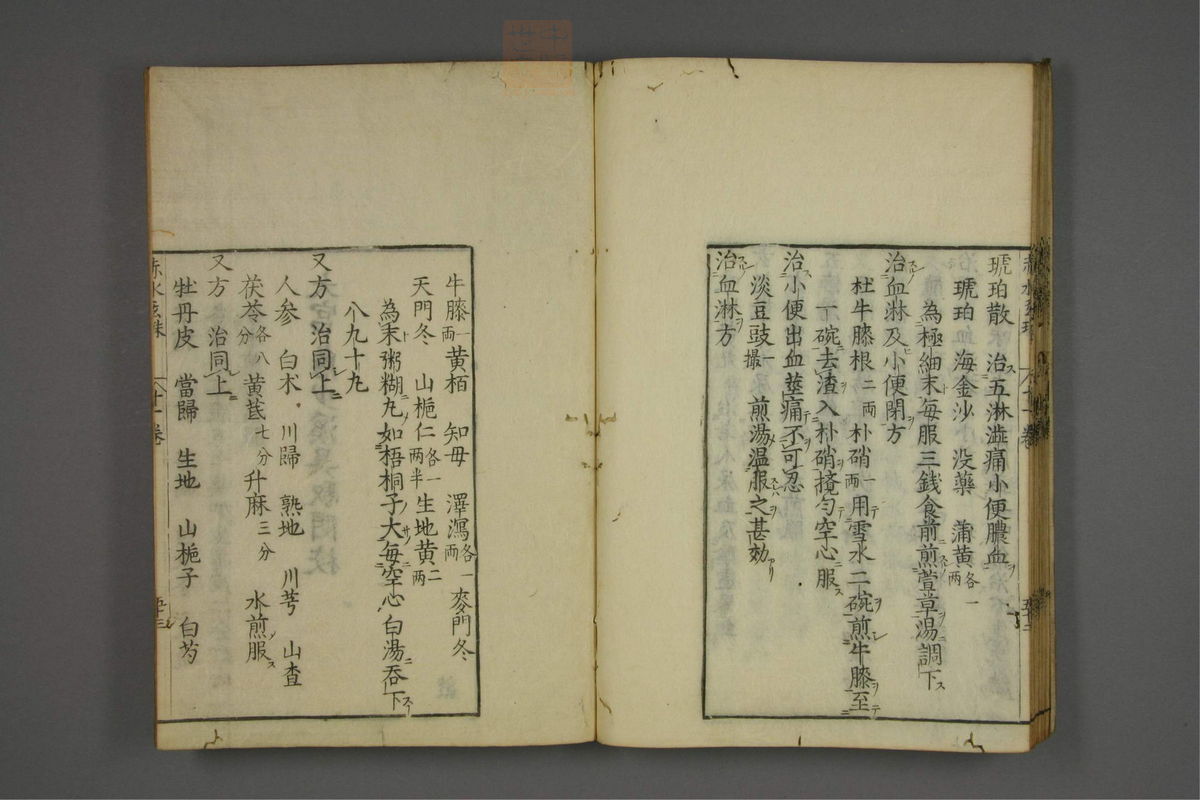 琥珀散 治五淋澁痛小便膿血
琥珀 海金沙 没藥 蒲黄各一兩
為極細末每服三錢食前煎萱草湯調下
治血淋及小便閉方
杜牛膝根二兩 朴硝一兩 用雪水二碗煎牛膝至
一碗去渣入朴硝攪勻空心服
治小便出血莖痛不可忍
淡豆豉一撮 煎湯温服之甚効
治血淋方
牛膝一兩 黄栢 知母 澤瀉各一兩 麥門冬
天門冬 山梔仁各一兩半 生地黄二兩
為末粥糊丸如梧桐子大每空心白湯吞下
八九十丸
又方 治同上
人參 白术 川歸 熟地 川芎 山查
茯苓各八分 黄芪七分 升麻三分 水煎服
又方 治同上
牡丹皮 當歸 生地 山梔子 白芍
赤水玄珠 十一卷